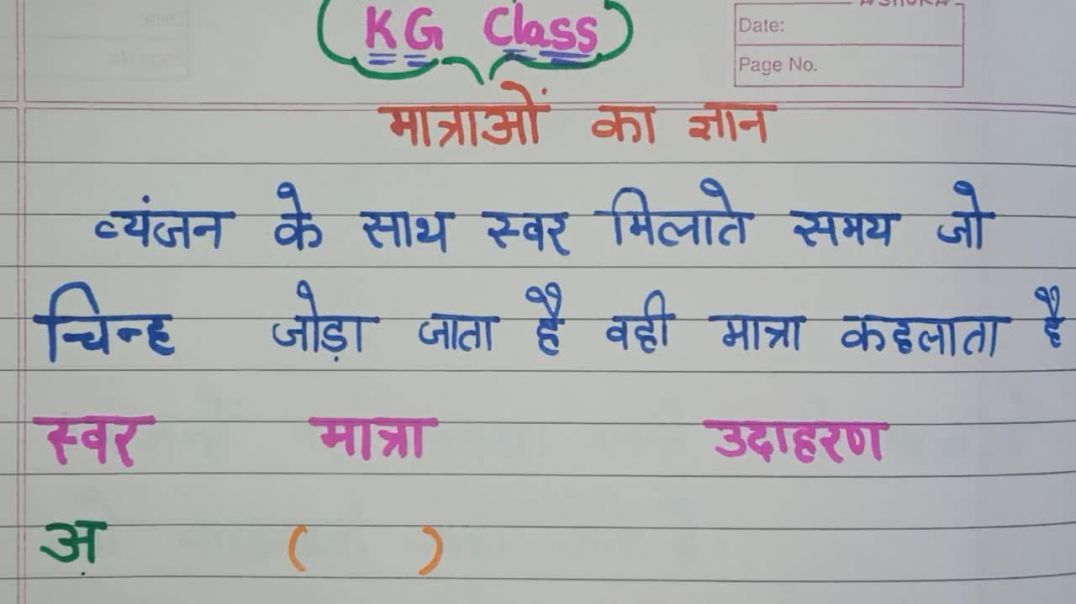 KG Class
Date:
Page No.
मात्राओं का ज्ञान
व्यंजन के साथ स्वर मिलाते समय जो
चिन्ह जोड़ा जाता है वही मात्रा कहलाता है
स्वर मात्रा उदाहरण
अ ( )